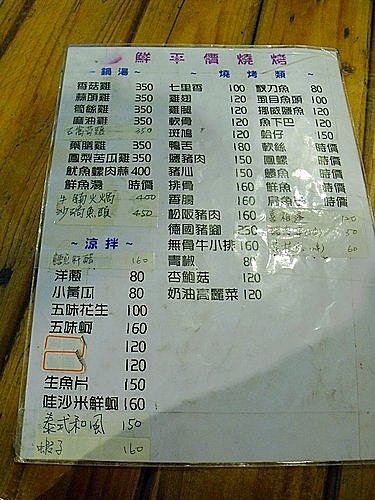 鮮平價燒烤
~鍋湯~
香菇雞 350
蒜頭雞 350
筍絲雞 350
麻油雞 350
350
藥膳雞 350
鳳梨苦瓜雞 350
魷魚螺肉蒜 400
鮮魚湯 時價
牛腩火鍋 400
沙鍋魚頭 450
~涼拌~
160
洋蔥 80
小黃瓜 80
五味花生 100
五味蚵 160
120
120
生魚片 150
哇沙米鮮蚵 160
泰式和風 150
蝦子 160
~燒烤類~
七里香 100
雞翅 120
雞腿 100
軟骨 120
斑鳩 120
鴨舌 180
鹹豬肉 150
豬心 150
排骨 160
香腸 160
松阪豬肉 160
德國豬腳 250
無骨牛小排 160
青椒 80
杏鮑菇 120
奶油高麗菜 120
秋刀魚 80
虱目魚頭 100
挪威鹽魚 120
魚下巴 120
蛤仔 150
軟絲 時價
鳳螺 時價
鱈魚 時價
鮮魚 時價
時價
120
60